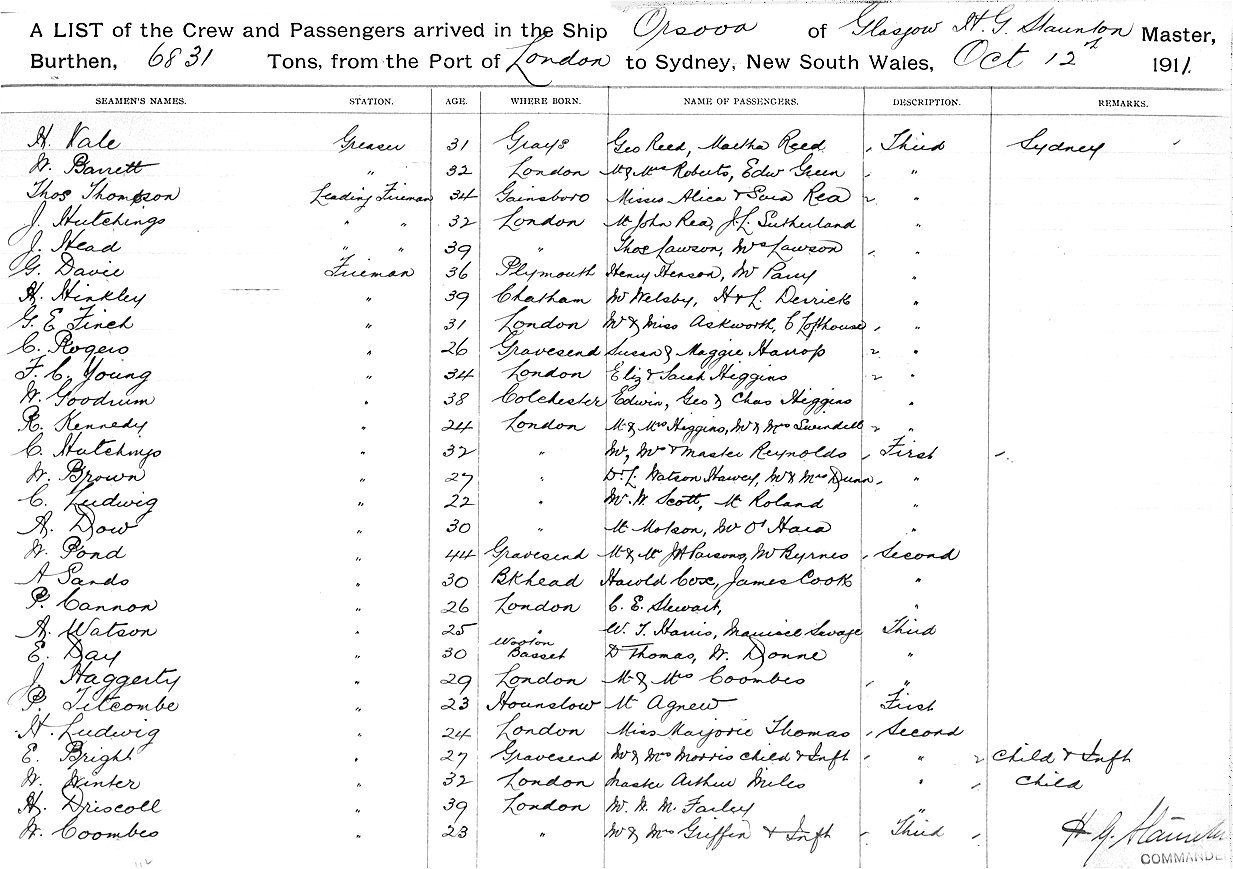 A LIST of the Crew and Passengers arrived in the Ship Orsova of Glasgow H. G. Staunton Master,
Burthen, 6831 Tons, from the Port of London to Sydney, New South Wales, Oct 12th 1911.
SEAMEN'S NAMES. STATION. AGE. WHERE BORN. NAME OF PASSENGERS. DESCRIPTION. REMARKS.
H. Vale Greaser 31 Grays Geo Reed, Martha Reed Third Sydney
W. Barrett " 32 London Mr & Mrs Roberts, Edw Green "
Thos Thompson Leading Fireman 34 Gainsboro Misses Alice & Sara Rea "
J. Hutchings " " 32 London Mr John Rea, J. L. Sutherland "
J. Head " " 39 " Thos Lawson, Mrs Lawson "
G. Davie Fireman 36 Plymouth Henry Henson, Mr Parry "
H. Hinkley " 39 Chatham Mr Welsby, H & L Derrick "
G. E Finch " 31 London Mr & Miss Askworth, C Lofthouse "
C. Rogers " 26 Gravesend Susan & Maggie Harrop "
F. C. Young " 34 London Eliz & Sarah Higgins "
W. Goodrum " 38 Colchester Edwin, Geo & Chas Higgins "
R. Kennedy " 24 London Mr & Mrs Higgins, Mr & Mrs Swindell "
C. Hutchings " 32 " Mr, Mrs & Master Reynolds First
W. Brown " 27 " Dr. L. Watson Harvey, Mr & Mrs Dunn "
C. Ludwig " 22 " Mr. W. Scott, Mr Roland "
A. Dow " 30 " Mr Motson, Mr O'Hara "
W. Pond " 44 Gravesend Mr & Mrs Parsons, Mr Byrnes Second
A Sands " 30 BKhead Harold Cox, James Cook "
P. Cannon " 26 London C. E. Stewart, "
A. Watson " 25 " W. T. Harris, Maurice Savage Third
E. Day " 30 Wooton Basset D Thomas, W. Donne "
J. Haggerty " 29 London Mr & Mrs Coombes "
P. Titcombe " 23 Hounslow Mr Agnew First
H. Ludwig " 24 London Miss Marjorie Thomas Second
E. Bright " 27 Gravesend Mr & Mrs Morris child & Inft " Child & Inft
W. Winter " 32 London Master Arthur Miles " Child
H. Driscoll " 39 London Mr. W. M. Farley "
W. Coombes " 23 " Mr & Mrs Griffin & Inft Third
H G. Staunton
COMMANDE